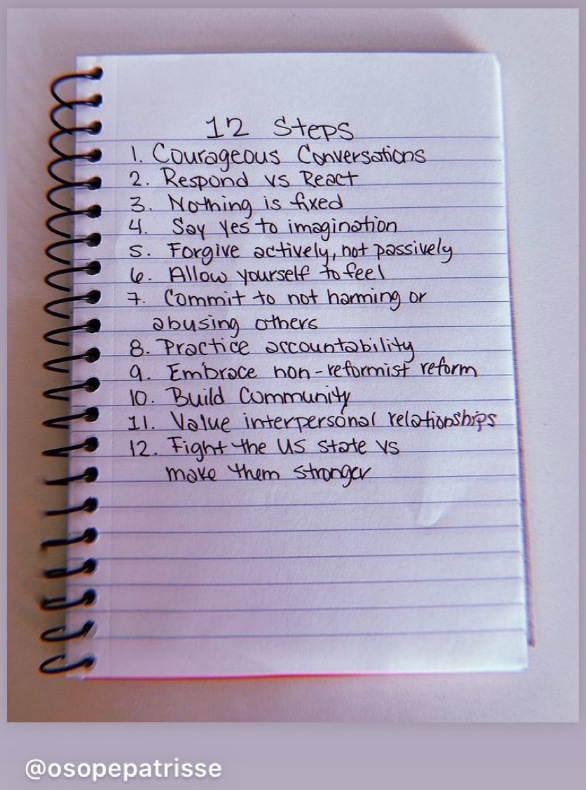 12 Steps
1. Courageous Conversations
2. Respond vs React
3. Nothing is fixed
4. Say yes to imagination
5. Forgive actively, not passively
6. Allow yourself to feel
7. Commit to not harming or
abusing others
8. Practice accountability
9. Embrace non-reformist reform
10. Build Community
11. Value interpersonal relationships
12. Fight the US state vs
make them stronger
@osopepatrisse